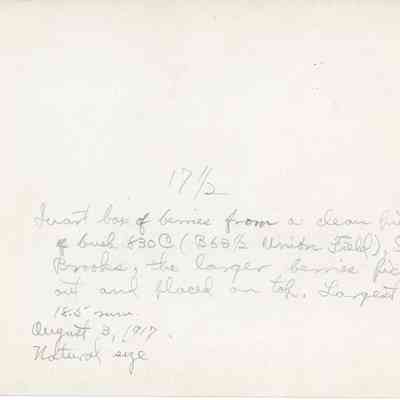 17 1/2
Quart box of berries from a clean
of bush 830C (B68½ Union Field),
Brooks, the larger berries
out and placed on top. Largest
18.5 mm.
August 3, 1917.
Natural size